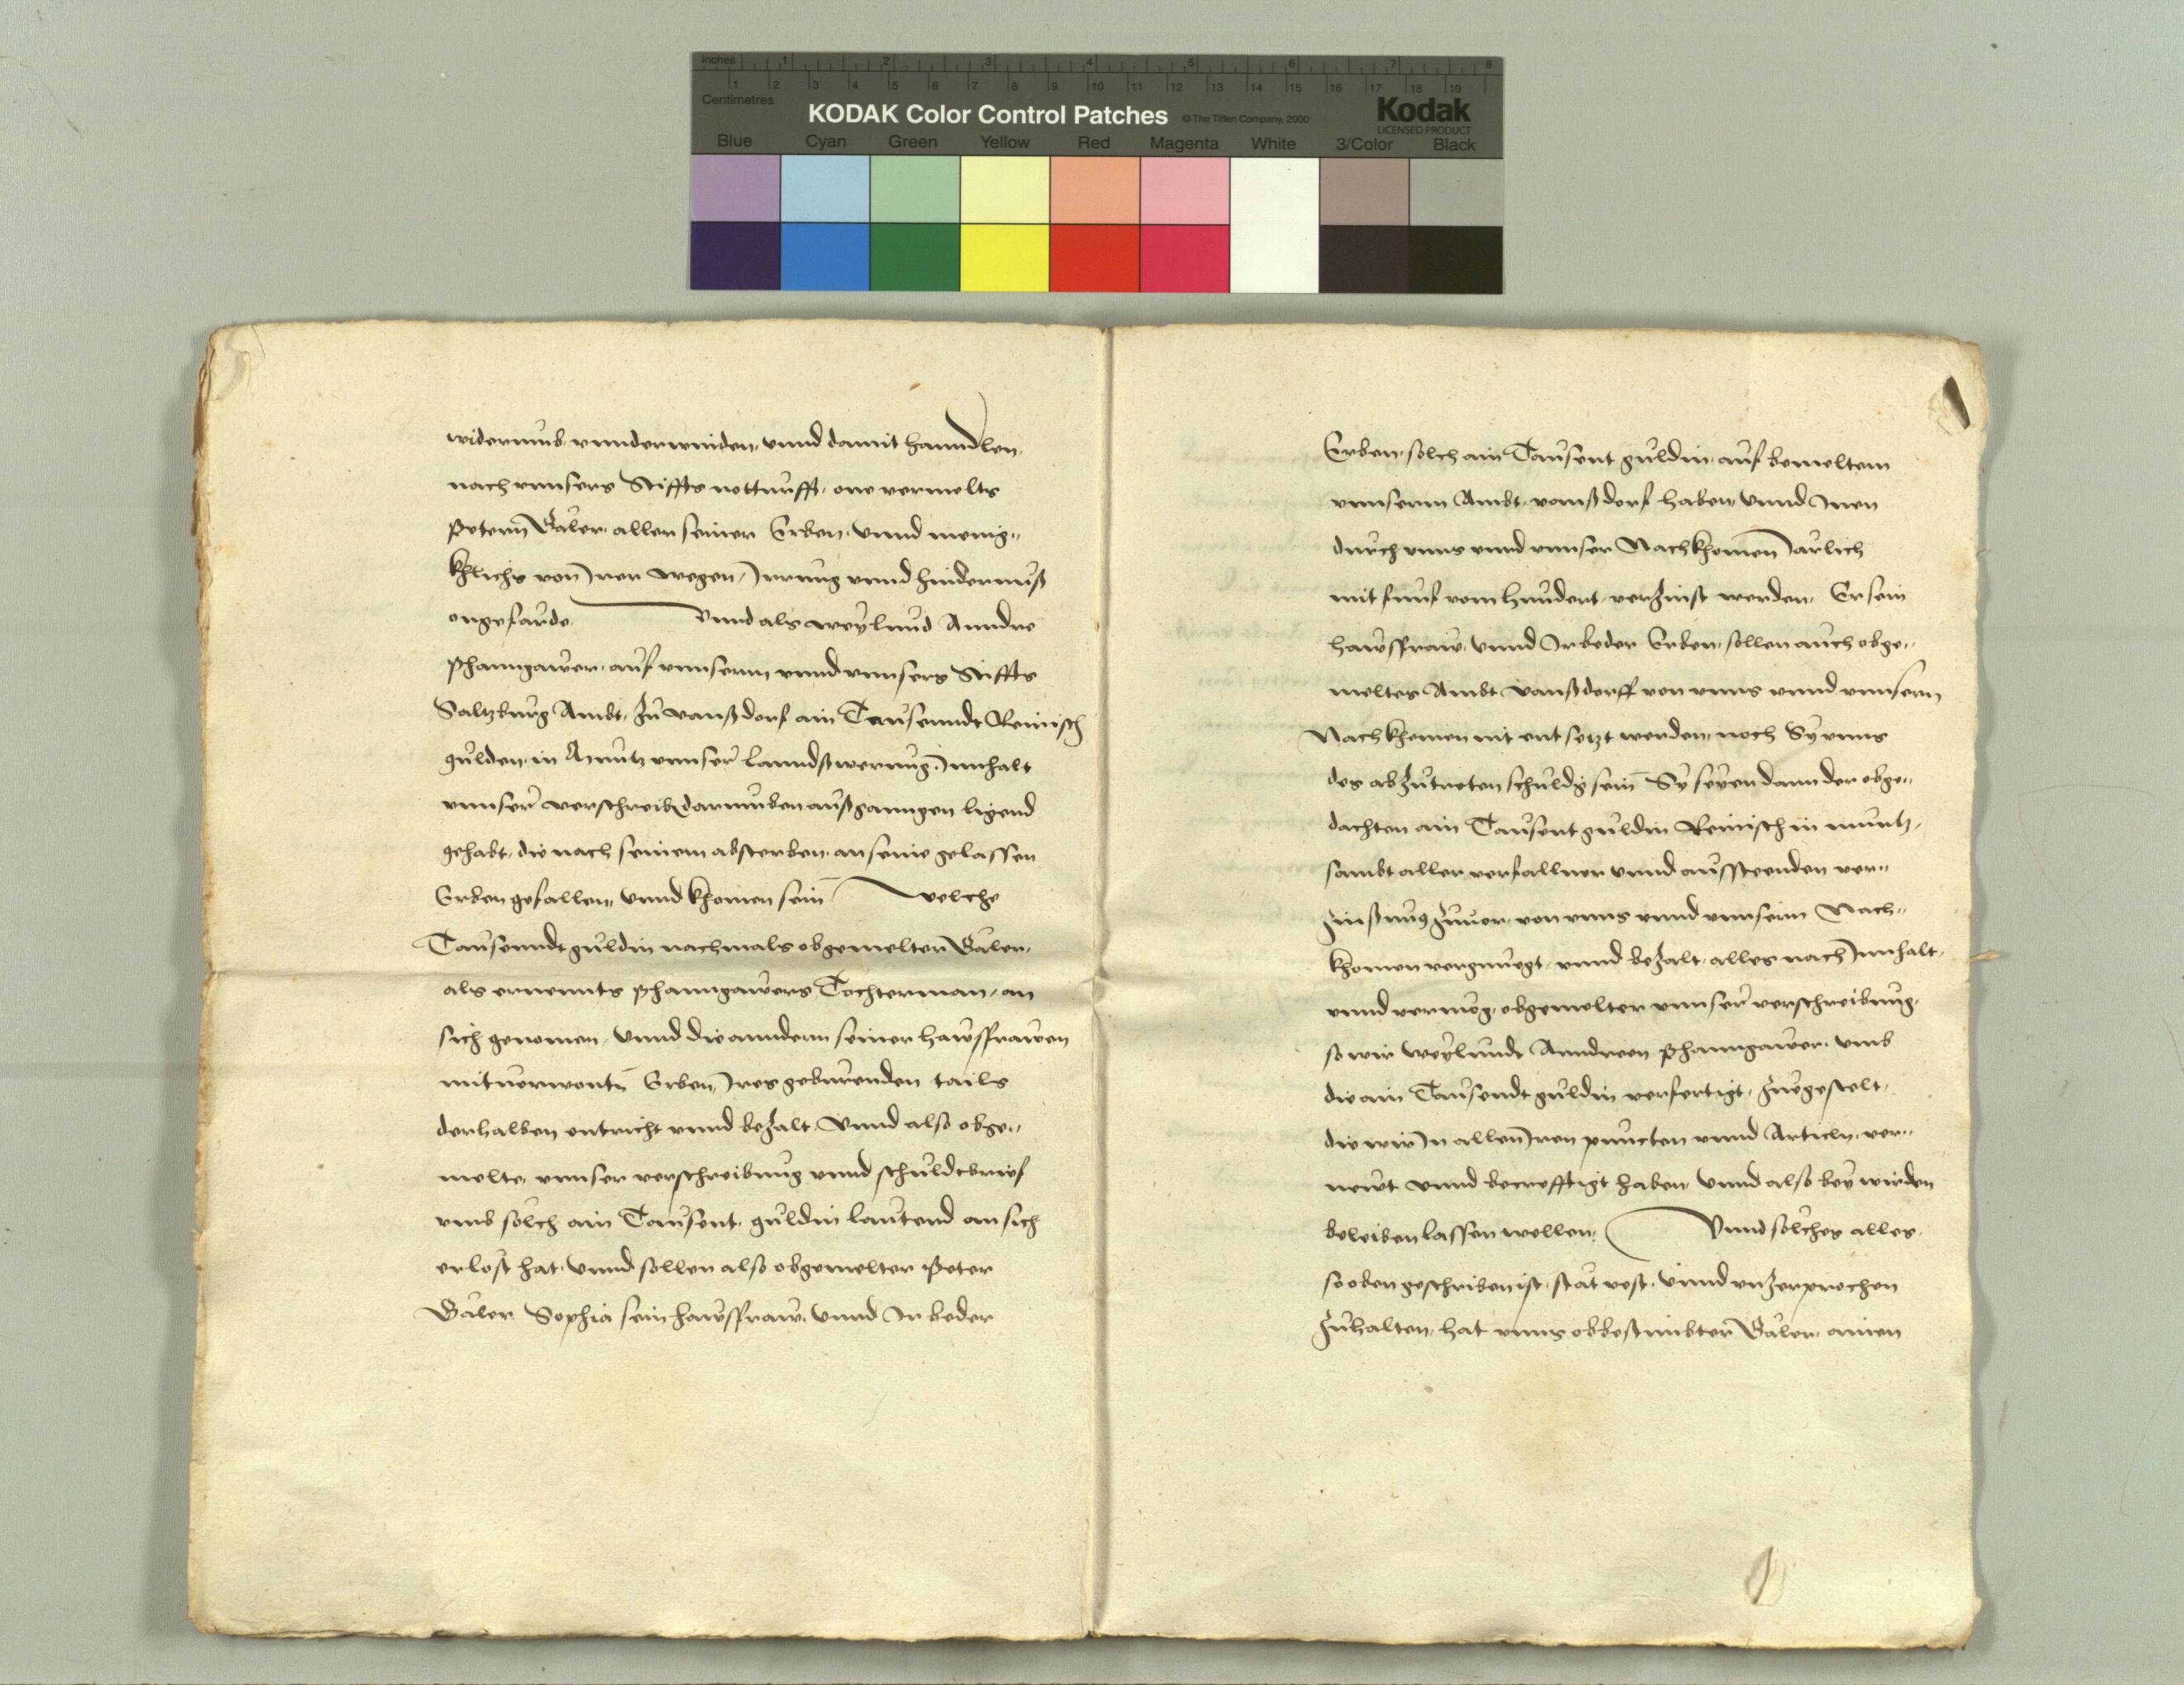 Inches 1 2 3 4 5 6 7 8
1 2 3 4 5 6 7 8 9 10 11 12 13 14 15 16 17 18 19
Centimetres
KODAK Color Control Patches © The Tiffen Company, 2000 Kodak
LICENSED PRODUCT
Blue Cyan Green Yellow Red Magenta White 3/Color Black
widerumb vnnderwinden, vnnd damit hanndlen,
nach vnnsers Stiffts notturfft, one vermelts
Petern Väler, aller seiner Erben, vnnd menig-
khlichs von Jren wegen, Jrrung vnnd hindernuß
ongefärde Vnnd als weylund Anndre
Phanngawer, auf vnnserm vnnd vnnsers Stiffts
Saltzburg Ambt, zu Vanßdorf ain Tausenndt Reinisch
gulden, in Müntz vnnser Lanndßwerung, Jnnhalt
vnnser verschreib darumben außganngen ligend
gehabt, die nach seinem absterben, an seine gelassen
Erben gefallen, vnnd khomen sein welche
Tausenndt guldin nachmals obgemelter Väler,
als ernennts Phanngawers Tochterman, an
sich genomen, Vnnd die anndern seiner hawsfrawen
mituerwontn Erben, Jres geburenden tails
derhalben entricht vnnd bezalt, Vnnd also obge-
melte, vnnser verschreibung vnnd schuldtbrief
vmb solch ain Tausent, guldin lautend an sich
erlost hat, Vnnd sollen also obgemelter Peter
Väler Sophia sein hawsfraw, Vnnd Jr beder
Erben, solch ain Tausent guldin, auf bemeltem
vnnserm Ambt, Vanßdorf haben, Vnnd Jnen
durch vnns vnnd vnnser Nachkhomen Järlich
mit funf vom hundert, verzinst werden, Er sein
hawsfraw, Vnnd Jr beder Erben, sollen auch obge-
meltes Ambt Vanßdorff von vnns vnnd vnnsern
Nachkhomen nit entsetzt werden, noch Sy vnns
des abzutreten schuldig sein Sy seyen dann der obge-
dachten ain Tausent guldin Reinisch in muntz,
sambt aller verfallner vnnd aussteenden ver-
zinßung zuuor, von vnns vnnd vnnsern Nach-
khomen vergnuegt, vnnd bezalt, alles nach Jnnhalt,
vnnd vermög, obgemelter vnnser verschreibung,
so wir weylundt Anndreen Phanngawer, vmb
die ain Tausendt guldin verfertigt, zuegestelt,
die wir Jn allen Jren puncten vnnd Articln, ver-
newt vnnd becrefftigt haben, Vnnd also bey wirden
beleiben lassen wellen, Vnnd solches alles,
so oben geschriben ist, stät vest, Vnnd vnzerprochen
zuhalten, hat vnns obbestimbter Väler, ainen